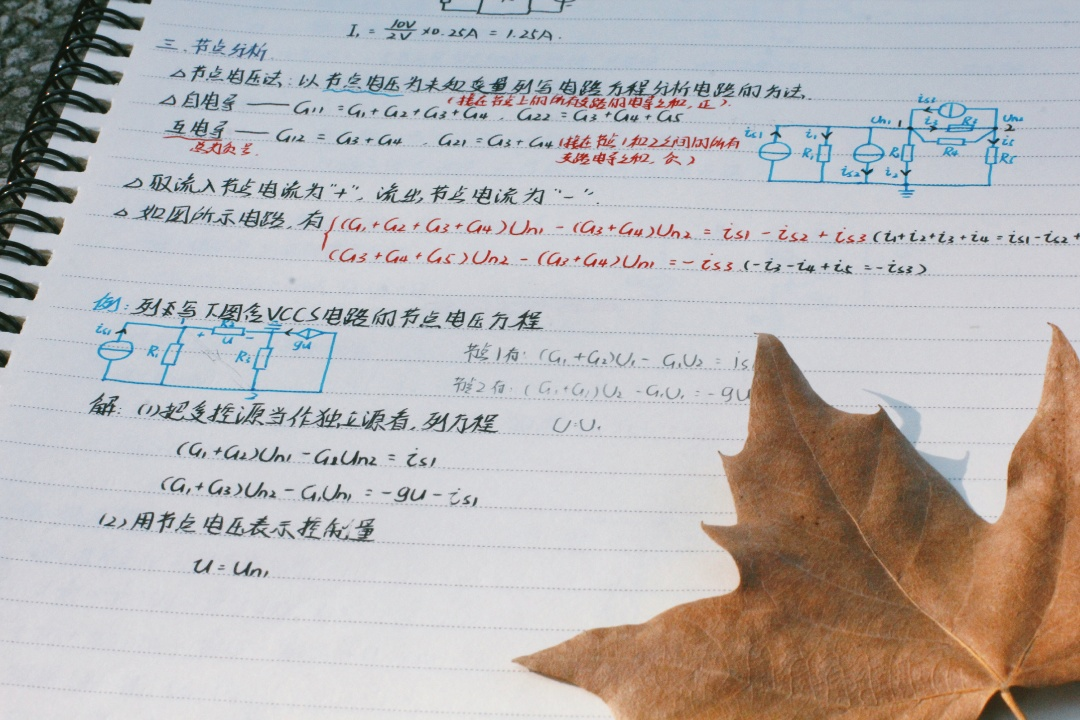 I₁ = 10V/2V ×0.25A = 1.25A.
三. 节点分析.
△节点电压法: 以节点电压为未知变量列写电路方程分析电路的方法.
(接在节点上的所有支路的电导之和, 正).
△自电导 —— G11 = G1+G2+G3+G4 . G22 = G3+G4+G5
互电导 —— G12 = G3+G4 . G21 = G3+G4 (接在节点1和2之间的所有
总为负号. 支路电导之和, 负)
is1 i1 R1 is2 R2 i2 Un1 1 is3 i3 R3 R4 Un2 2 i5 R5
△取流入节点电流为"+", 流出节点电流为"-".
△如图所示电路, 有 (G1+G2+G3+G4)Un1 - (G3+G4)Un2 = is1 - is2 + is3 (i1+i2+i3+i4 = is1-is2+
(G3+G4+G5)Un2 - (G3+G4)Un1 = -is3 (-i3-i4+i5 = -is3)
例: 列写下图含VCCS电路的节点电压方程
is1 R1 1 + u - R3 gu 2
节点1有: (G1+G2)U1 - G1U2 = is
节点2有: (G1+G3)U2 - G1U1 = -gU
解: (1)把受控源当作独立源看, 列方程
U=U1
(G1+G2)Un1 - G2Un2 = is1
(G1+G3)Un2 - G1Un1 = -gu - is1
(2)用节点电压表示控制量
u = Un1